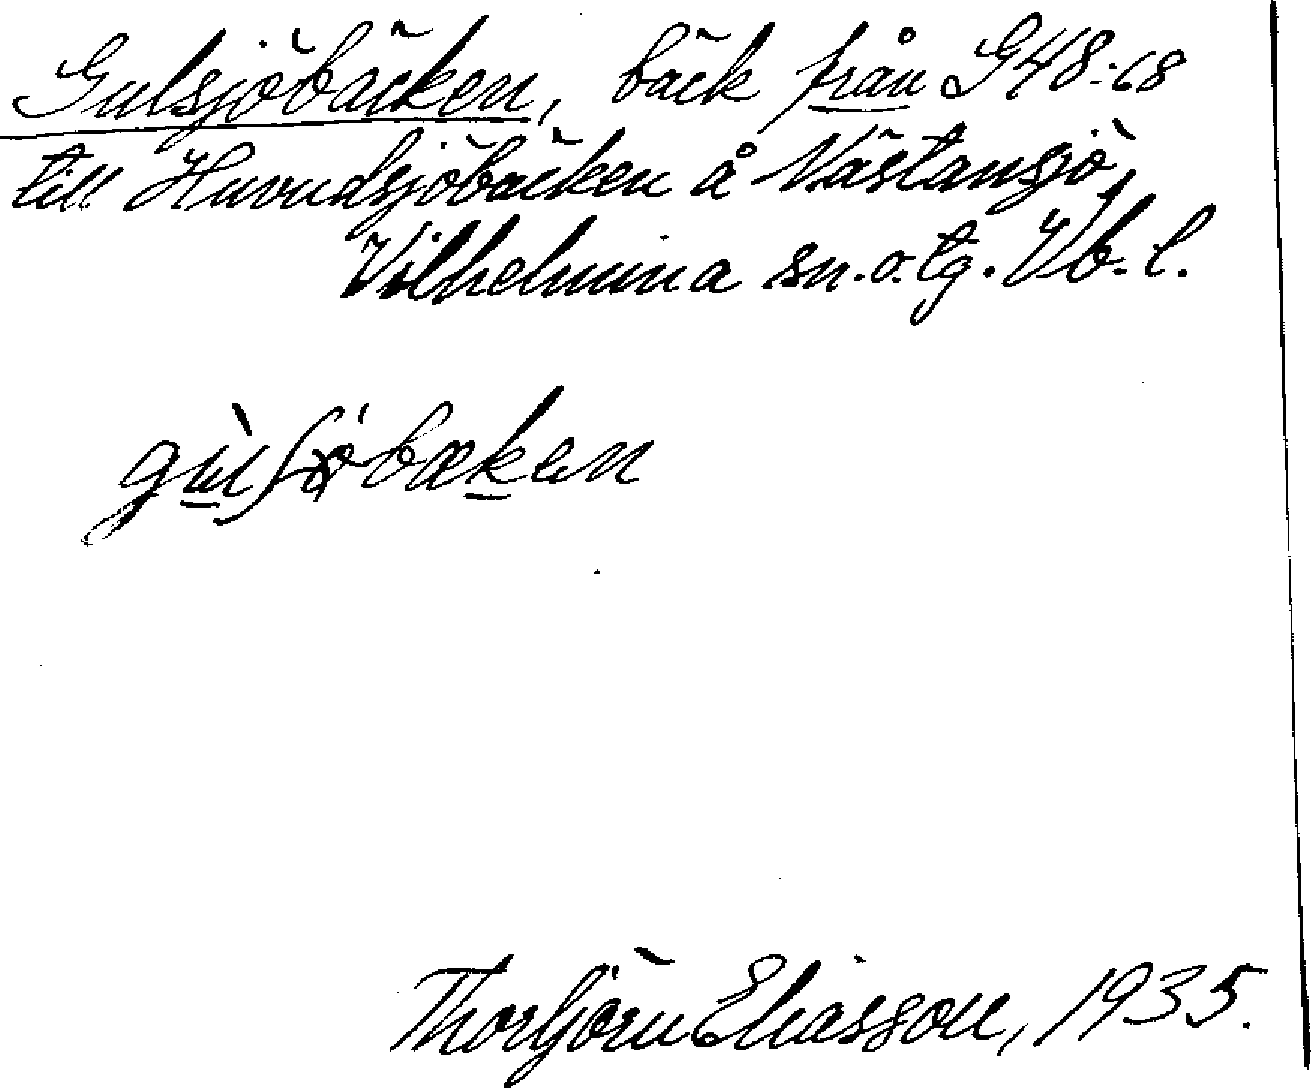 Gulsjöbäcken, bäck från G48:68
till Huvudsjöbäcken å Västansjö,
Vilhelmina sn. o. tg. Vb. l.
Thorbjörn Eliasson, 1935.